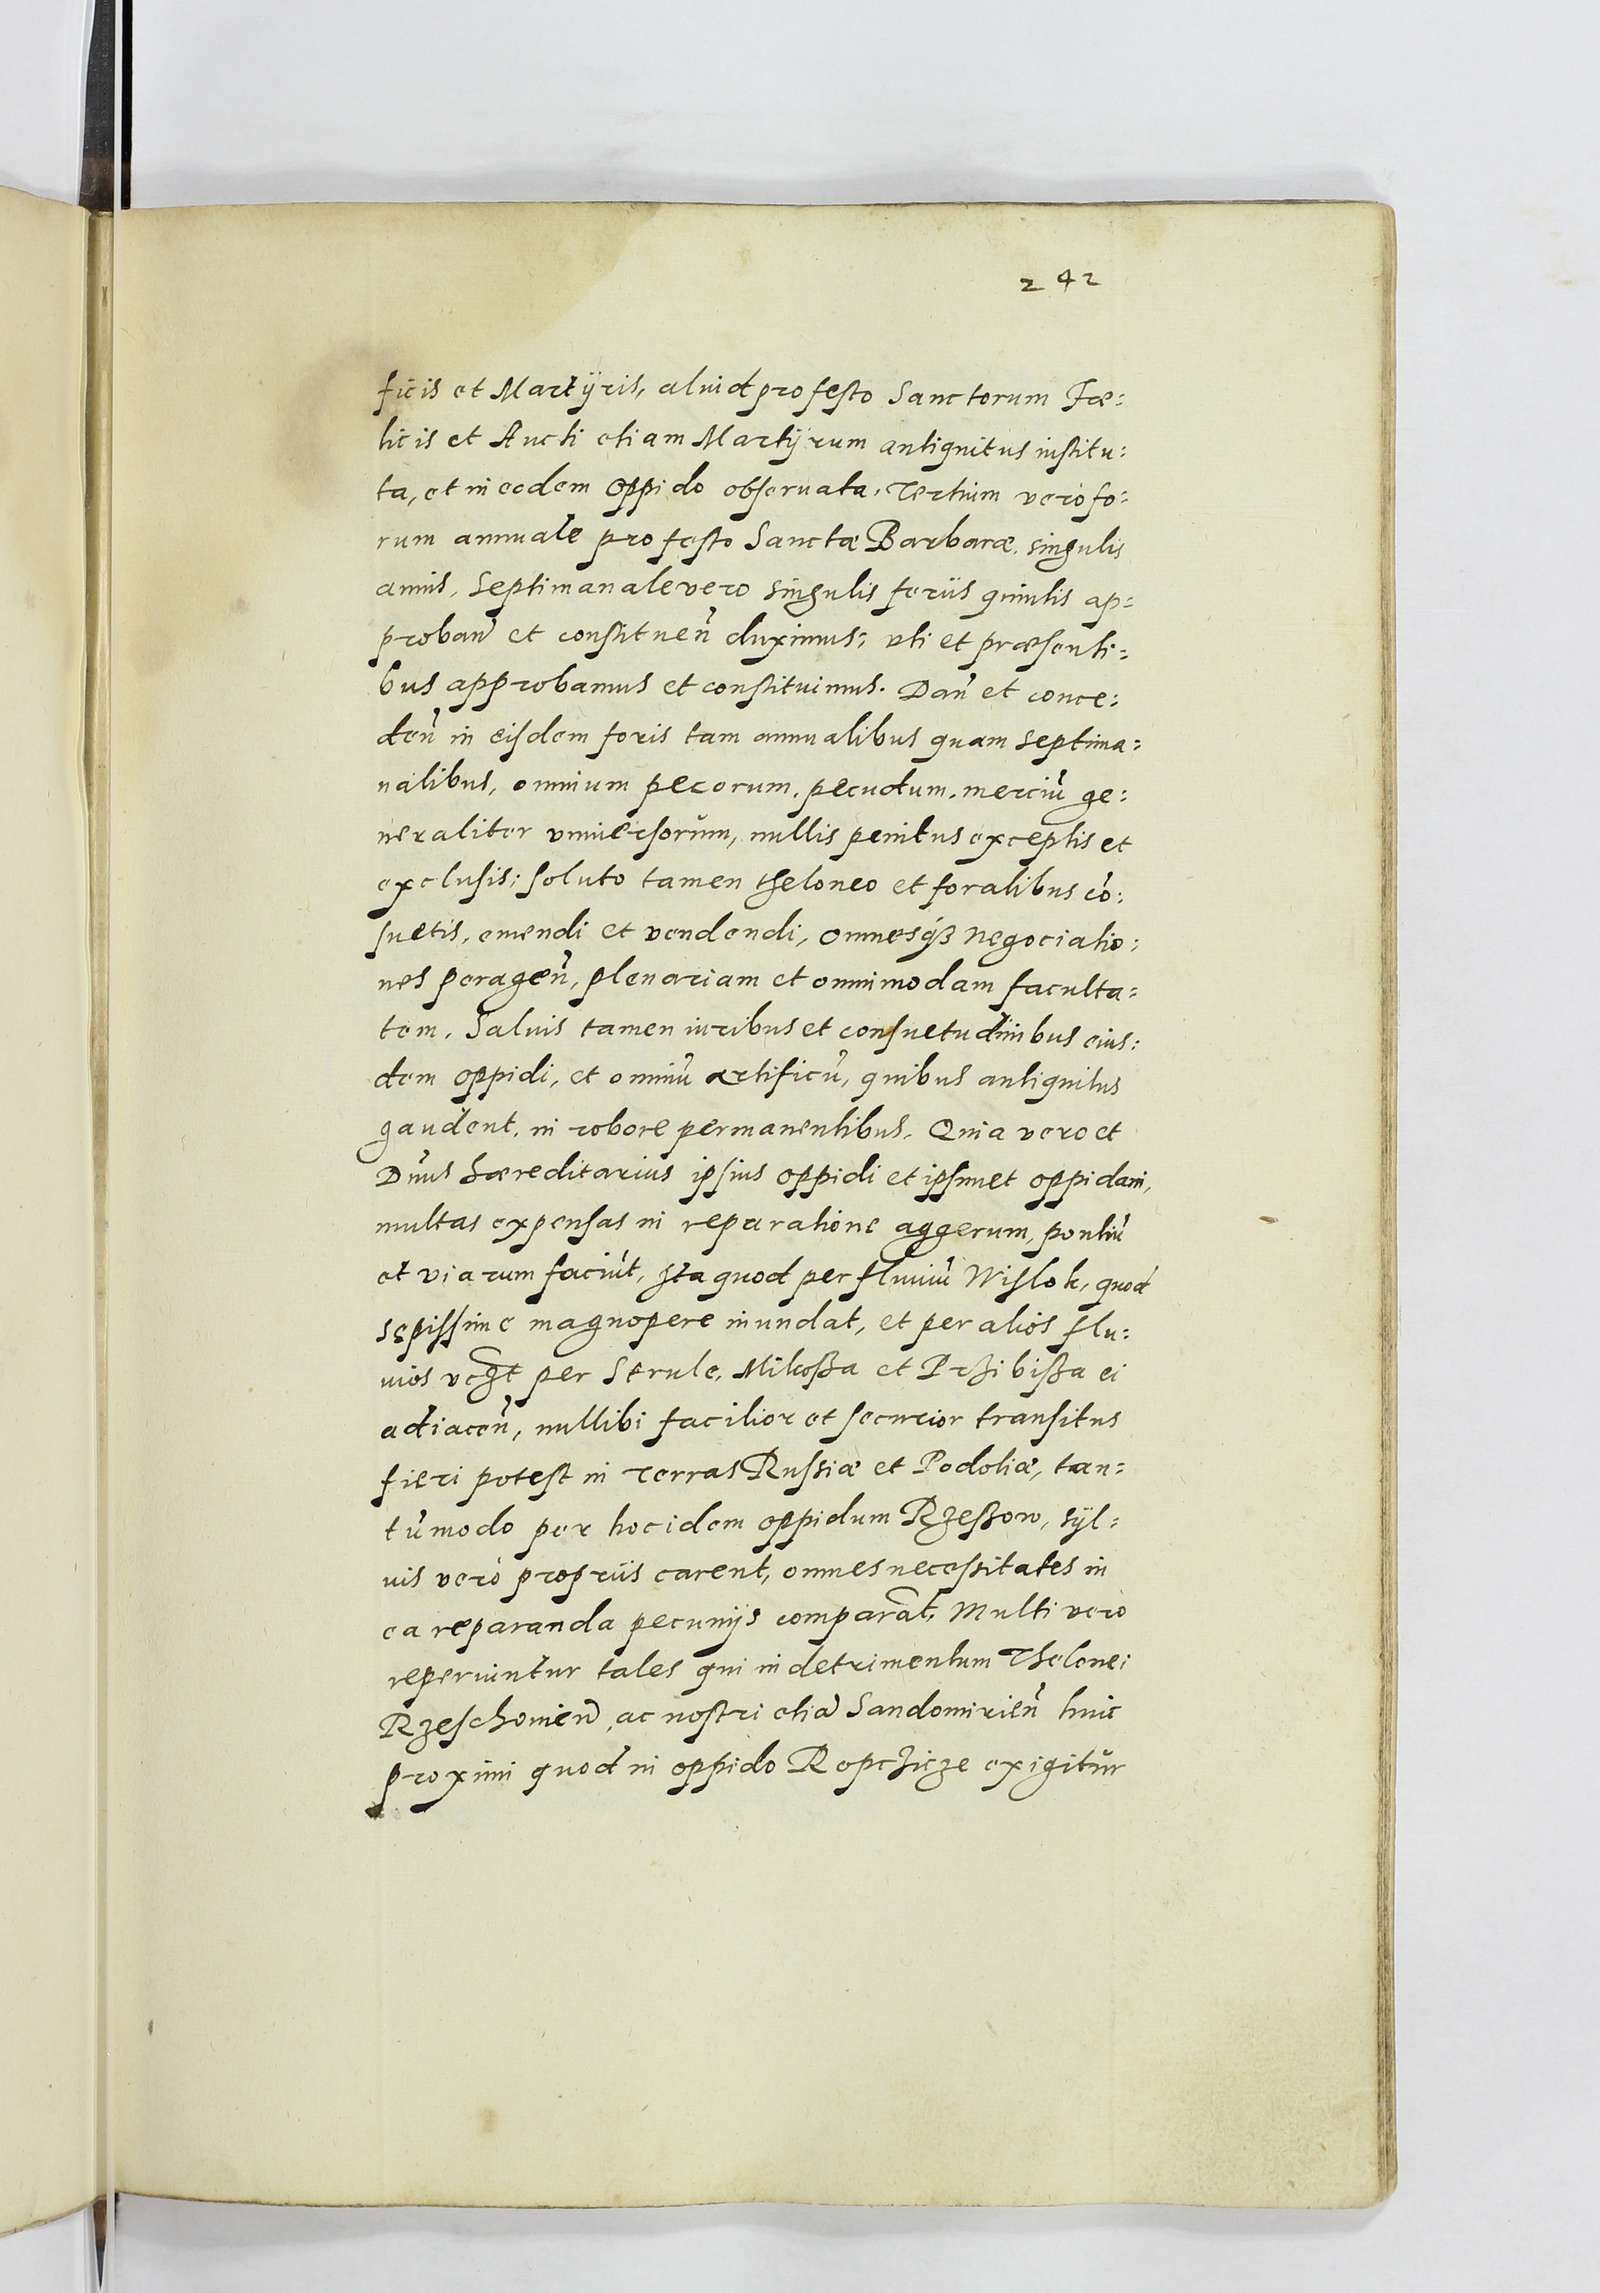 242
ficis et Martÿris, aliud pro festo Sanctorum Fæ:
licis et Aucti etiam Martÿrum antiquitus institu:
ta, et in eodem oppido obseruata. Tertium verò fo:
rum annuale pro festo Sanctæ Barbaræ. singulis
annis, Septimanale vero singulis feriis quintis ap:
proban̄ et constituen̄ duximus; vti et præsenti:
bus approbamus et constituimus. Dan̄ et conce:
den̄ in eisdem foris tam annualibus quam septima:
nalibus, omnium pecorum, pecudum, merciū ge:
neraliter vniuersorum, nullis penitus exceptis et
exclusis; soluto tamen theloneo et foralibus cō:
suetis, emendi et vendendi, omnesqȝ negociatio:
nes peragen̄, plenariam et omnimodam faculta:
tem. Saluis tamen iuribus et consuetudinibus eius:
dem oppidi, et omniū artificū, quibus antiquitus
gaudent, in robore permanentibus. Quia vero et
Dn̄us hæreditarius ipsius oppidi et ipsimet oppidani,
multas expensas in reparatione aggerum, pontiū
et viarum faciūt, Ita quod per fluuiū Wislok, quod
sępissime magnopere inundat, et per alios flu:
uios vcꝫt per Strule, Mikoßa et Prżibißa ei
adiacen̄, nullibi facilior et securior transitus
fieri potest in terras Russiæ et Podoliæ, tan:
tūmodo per hoc idem oppidum Rzeßow, sÿl:
uis verò propriis carent, omnes necessitates in
ea reparanda pecunijs comparāt. Multi vero
reperiuntur tales qui in detrimentum Thelonei
Rzeschouien̄, ac nostri etiā Sandomirien̄ huic
proximi quod in oppido Ropcżicze exigitur